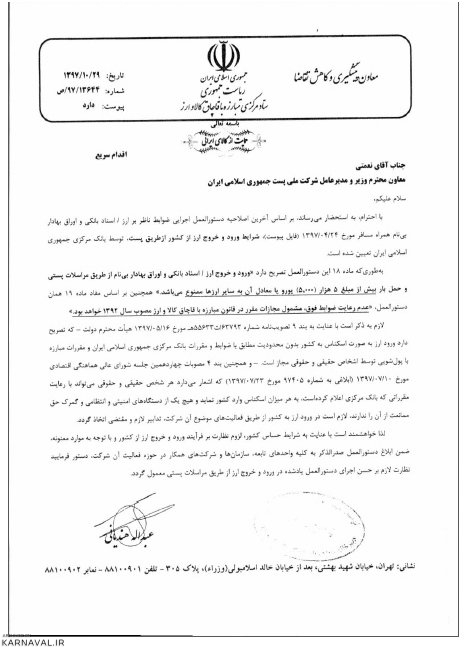 جمهوری اسلامی ایران
ریاست جمهوری
ستاد مرکزی مبارزه با قاچاق کالا و ارز
معاون پیشگیری و کاهش تقاضا
تاریخ: ۱۳۹۷/۱۰/۲۹
شماره: ۹۷/۱۳۶۴۴/ص
پیوست: دارد
باسمه تعالی
حمایت از کالای ایرانی
اقدام سریع
جناب آقای نعمتی
معاون محترم وزیر و مدیرعامل شرکت ملی پست جمهوری اسلامی ایران
سلام علیکم،
با احترام، به استحضار می‌رساند، بر اساس آخرین اصلاحیه دستورالعمل اجرایی ضوابط ناظر بر ارز / اسناد بانکی و اوراق بهادار
بی‌نام همراه مسافر مورخ ۱۳۹۷/۰۴/۲۴ (فایل پیوست)، شرایط ورود و خروج ارز از کشور ازطریق پست، توسط بانک مرکزی جمهوری
اسلامی ایران تعیین شده است.
به‌طوری‌که ماده ۱۸ این دستورالعمل تصریح دارد «ورود و خروج ارز / اسناد بانکی و اوراق بهادار بی‌نام از طریق مراسلات پستی
و حمل بار بیش از مبلغ ۵ هزار (۵,۰۰۰) یورو یا معادل آن به سایر ارزها ممنوع می‌باشد.» همچنین بر اساس مفاد ماده ۱۹ همان
دستورالعمل، «عدم رعایت ضوابط فوق، مشمول مجازات مقرر در قانون مبارزه با قاچاق کالا و ارز مصوب سال ۱۳۹۲ خواهد بود.»
لازم به ذکر است با عنایت به بند ۹ تصویب‌نامه شماره ۶۳۷۹۳/ت۵۵۶۳۳هـ مورخ ۱۳۹۷/۰۵/۱۶ هیأت محترم دولت - که تصریح
دارد ورود ارز به صورت اسکناس به کشور بدون محدودیت مطابق با ضوابط و مقررات بانک مرکزی جمهوری اسلامی ایران و مقررات مبارزه
با پول‌شویی توسط اشخاص حقیقی و حقوقی مجاز است. - و همچنین بند ۴ مصوبات چهاردهمین جلسه شورای عالی هماهنگی اقتصادی
مورخ ۱۳۹۷/۰۷/۱۰ (ابلاغی به شماره ۹۷۴۰۵ مورخ ۱۳۹۷/۰۷/۲۳) که اشعار می‌دارد هر شخص حقیقی و حقوقی می‌تواند با رعایت
مقرراتی که بانک مرکزی اعلام کرده‌است، به هر میزان اسکناس وارد کشور نماید و هیچ یک از دستگاه‌های امنیتی و انتظامی و گمرک حق
ممانعت از آن را ندارند، لازم است در ورود ارز به کشور از طریق فعالیت‌های موضوع آن شرکت، تدابیر لازم و مقتضی اتخاذ گردد.
لذا خواهشمند است با عنایت به شرایط حساس کشور، لزوم نظارت بر فرآیند ورود و خروج ارز از کشور و با توجه به موارد معنونه،
ضمن ابلاغ دستورالعمل صدرالذکر به کلیه واحدهای تابعه، سازمان‌ها و شرکت‌های همکار در حوزه فعالیت آن شرکت، دستور فرمایید
نظارت لازم بر حسن اجرای دستورالعمل یادشده در ورود و خروج ارز از طریق مراسلات پستی معمول گردد.
عبدالله هندیانی
نشانی: تهران، خیابان شهید بهشتی، بعد از خیابان خالد اسلامبولی (وزراء)، پلاک ۳۰۵ - تلفن ۸۸۱۰۰۹۰۱ - نمابر ۸۸۱۰۰۹۰۲
KARNAVAL.IR